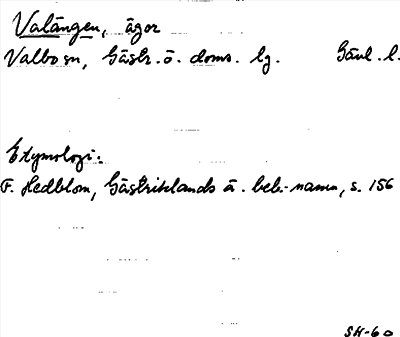 Valängen, ägor
Valbo sn, Gästr. ö. doms. lg. Gävl. l.
Etymologi:
F. Hedblom, Gästriklands ä. beb.-namn, s. 156
SH-60